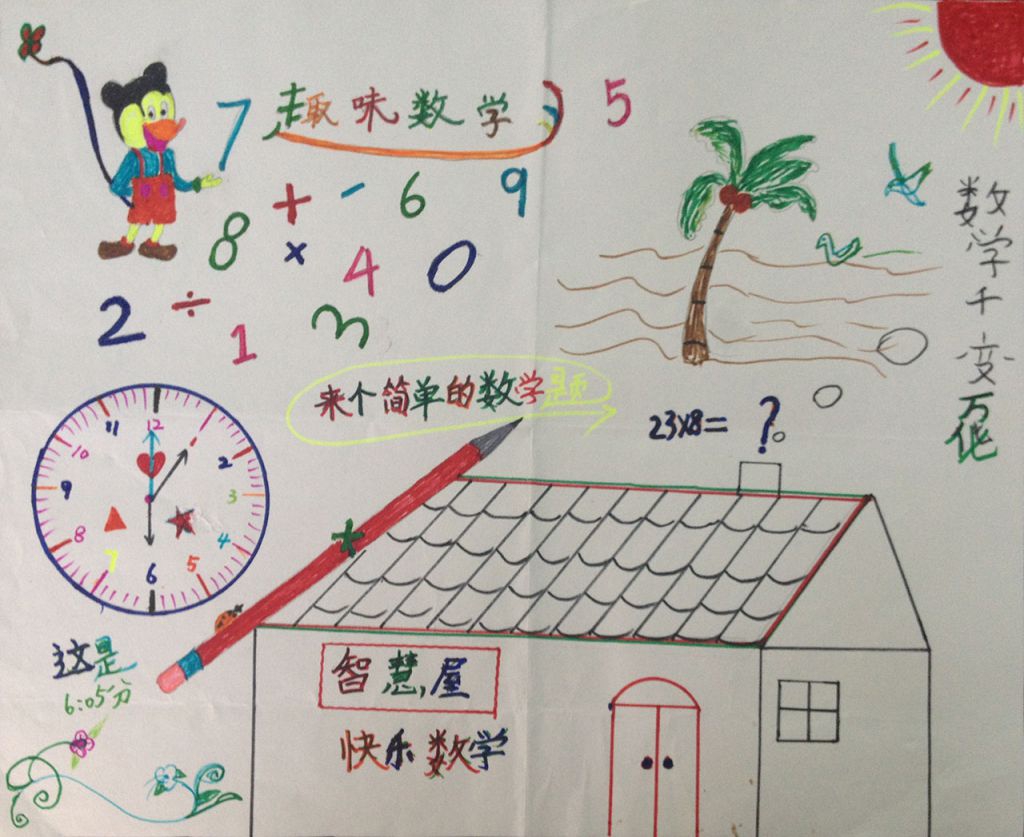 7 趣味数学 5
+ - 6 9
8 × 4 0
2 ÷ 1 3
来个简单的数学题
23×8= ?
数学千变万化
12
11 1
10 2
9 3
8 4
7 5
6
这是
6:05分
智慧屋
快乐数学